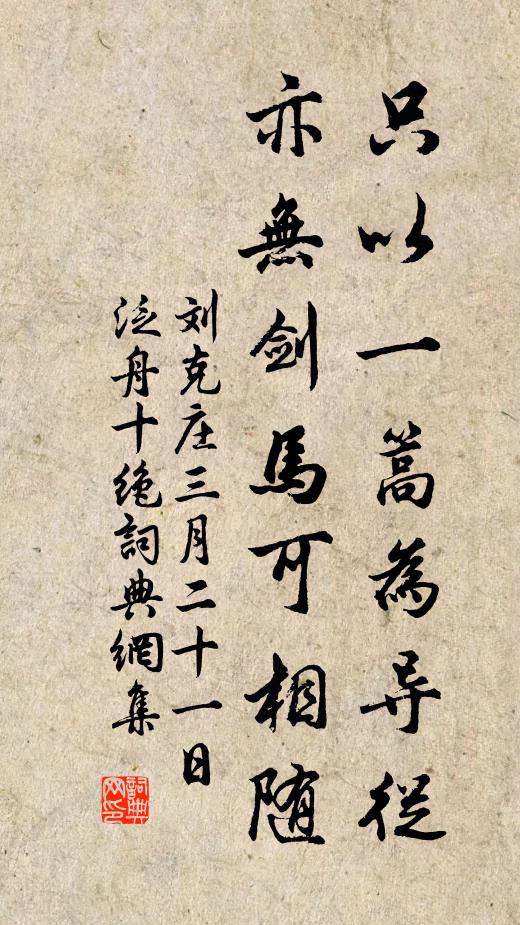 只以一篙為导從
亦無劍馬可相随
刘克庄三月二十一日
泛舟十绝詞典網集
詞典网印